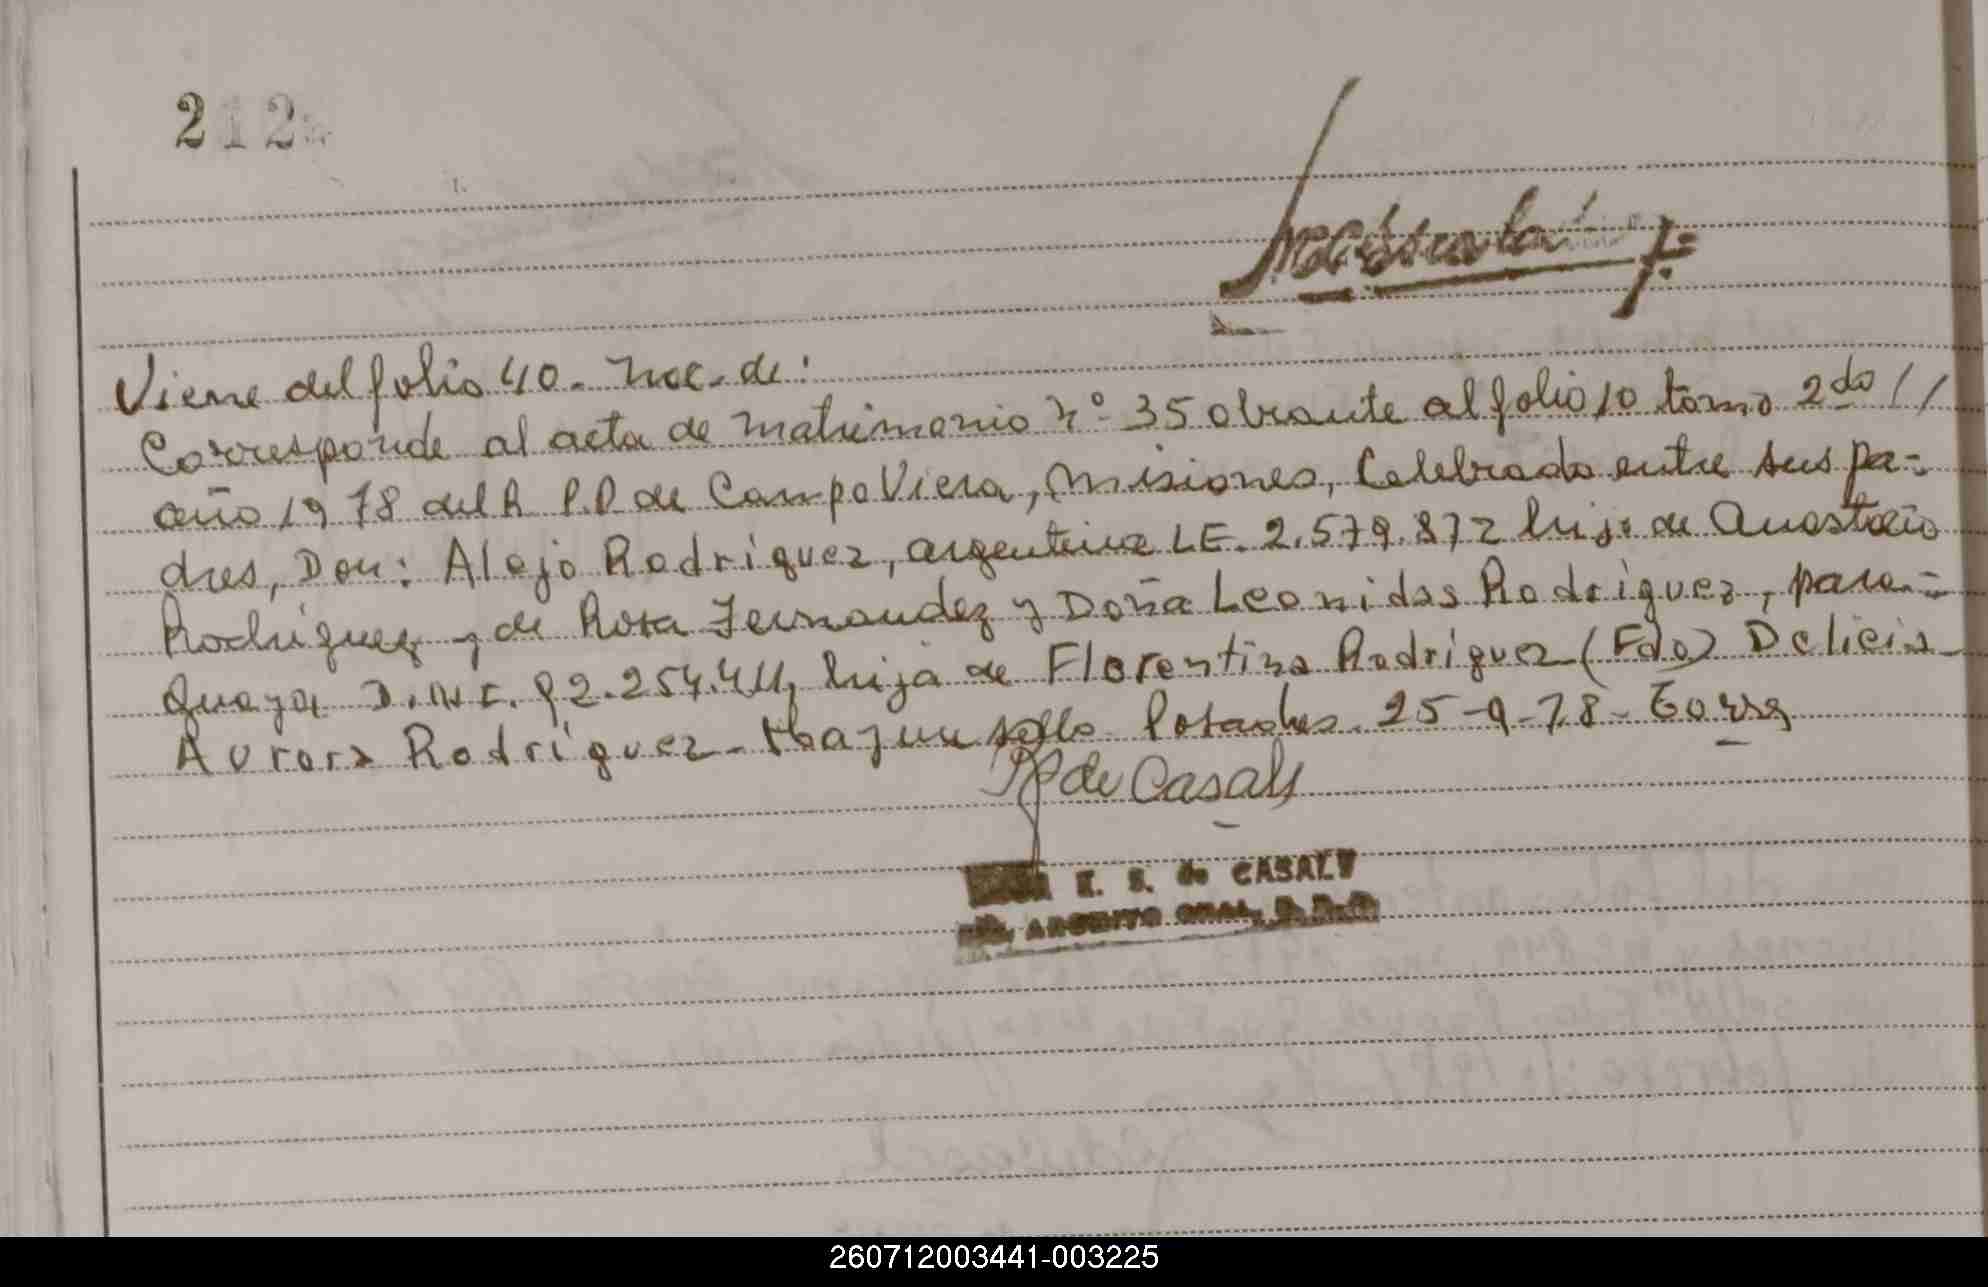 212
Viene del folio 40. nac. de:
Corresponde al acta de matrimonio nº 35 obrante al folio 10 tomo 2do //
año 1978 del R.P.P. de Campo Viera, Misiones, Celebrado entre sus pa-
dres, Don: Alejo Rodríguez, argentino LE. 2.579.872 hijo de Anastacio
Rodríguez y de Rosa Fernandez y Doña Leonidas Rodríguez, para-
guaya D.N.I. 92.254.411, hija de Florentina Rodríguez (Fdo) Delicia
Aurora Rodríguez - Hay un sello Posadas. 25-9-78-
de Casals
E. S. de CASALS
ARCHIVO GRAL.
260712003441-003225